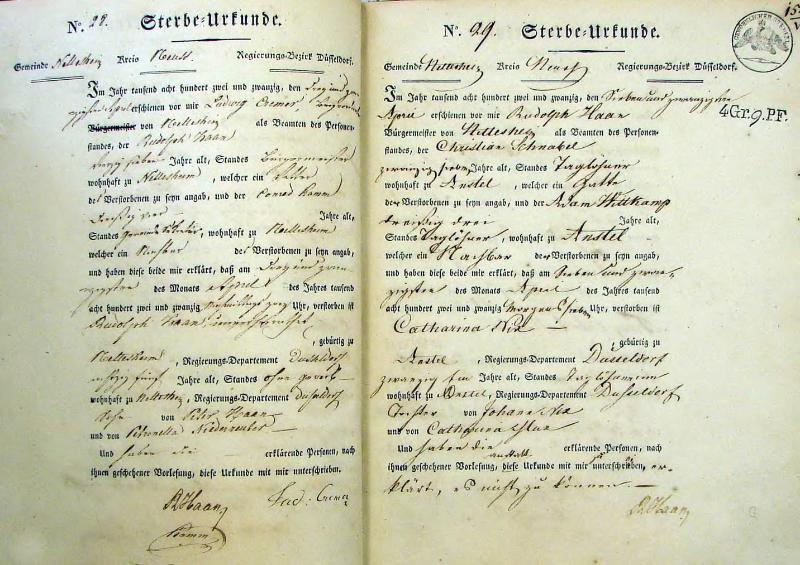 No. 28. Sterbe-Urkunde.
Gemeinde Nettesheim Kreis Neuss Regierungs-Bezirk Düsseldorf.
Im Jahr tausend acht hundert zwei und zwanzig, den Drey und zwan
zigsten April erschienen vor mir Ludwig Cremer,
Bürgermeister von Nettesheim als Beamten des Personen-
standes, der Rudolph Haan
vierzig sieben Jahre alt, Standes Bürgermeister
wohnhaft zu Nettesheim, welcher ein
des Verstorbenen zu seyn angab, und der Conrad Hamm
Dreißig vier Jahre alt,
Standes, wohnhaft zu Nettesheim
welcher ein Nachbar des Verstorbenen zu seyn angab,
und haben diese beide mir erklärt, daß am Drey und zwan
zigsten des Monats April des Jahres tausend
acht hundert zwei und zwanzig Uhr, verstorben ist
Rudolph Haan
, gebürtig zu
Nettesheim, Regierungs-Departement Düsseldorf
fünf Jahre alt, Standes ohne
wohnhaft zu Nettesheim, Regierungs-Departement Düsseldorf
Sohn von Peter Haan
und von Petronella
Und haben die erklärende Personen, nach
ihnen geschehener Vorlesung, diese Urkunde mit mir unterschrieben.
RHaan Lud: Cremer
Hamm
No. 29. Sterbe-Urkunde.
Gemeinde Nettesheim Kreis Neuss Regierungs-Bezirk Düsseldorf.
4Gr. 9. PF.
Im Jahr tausend acht hundert zwei und zwanzig, den Sieben und zwanzigsten
April erschienen vor mir Rudolph Haan
Bürgermeister von Nettesheim als Beamten des Personen-
standes, der Christian Schnabel
zwanzig sieben Jahre alt, Standes Taglöhner
wohnhaft zu Anstel, welcher ein Gatte
der Verstorbenen zu seyn angab, und der Adam Wittkamp
dreißig drei Jahre alt,
Standes Taglöhner, wohnhaft zu Anstel
welcher ein Nachbar der Verstorbenen zu seyn angab,
und haben diese beide mir erklärt, daß am Sieben und zwan
zigsten des Monats April des Jahres tausend
acht hundert zwei und zwanzig Morgens sieben Uhr, verstorben ist
Catharina Nix
, gebürtig zu
Anstel, Regierungs-Departement Düsseldorf
zwanzig Jahre alt, Standes Taglöhnerinn
wohnhaft zu Anstel, Regierungs-Departement Düsseldorf
Tochter von Johann Nix
und von Catharina
Und haben die erklärende Personen, nach
ihnen geschehener Vorlesung, diese Urkunde mit mir anstatt zu unterschreiben, er-
klärt, es nicht zu können.
RHaan